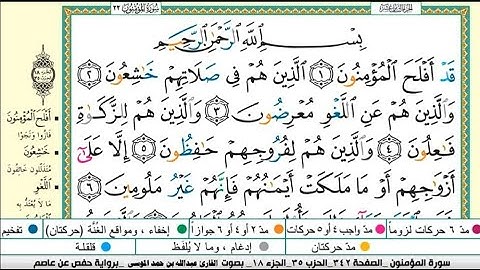 سورة المؤمنون ٢٣
بِسْمِ اللَّهِ الرَّحْمَٰنِ الرَّحِيمِ
قَدْ أَفْلَحَ الْمُؤْمِنُونَ ١ الَّذِينَ هُمْ فِي صَلَاتِهِمْ خَاشِعُونَ ٢
وَالَّذِينَ هُمْ عَنِ اللَّغْوِ مُعْرِضُونَ ٣ وَالَّذِينَ هُمْ لِلزَّكَاةِ
فَاعِلُونَ ٤ وَالَّذِينَ هُمْ لِفُرُوجِهِمْ حَافِظُونَ ٥ إِلَّا عَلَىٰ
أَزْوَاجِهِمْ أَوْ مَا مَلَكَتْ أَيْمَانُهُمْ فَإِنَّهُمْ غَيْرُ مَلُومِينَ ٦
أَفْلَحَ الْمُؤْمِنُونَ
فازوا ونجوا
خَاشِعُونَ
متذللون خائفون
اللَّغْوِ
ما لا يُعتدّ به
مدّ ٦ حركات لزوماً مدّ واجب ٤ أو ٥ حركات مدّ ٢ أو ٤ أو ٦ جوازاً إخفاء، ومواقع الغُنَّة (حركتان) تفخيم
مدّ حركتان إدغام، وما لا يُلفَظ قلقلة
سورة المؤمنون _الصفحة ٣٤٢_ الحزب ٣٥_ الجزء ١٨_ بصوت القارئ عبدالله بن حمد الموسى _برواية حفص عن عاصم